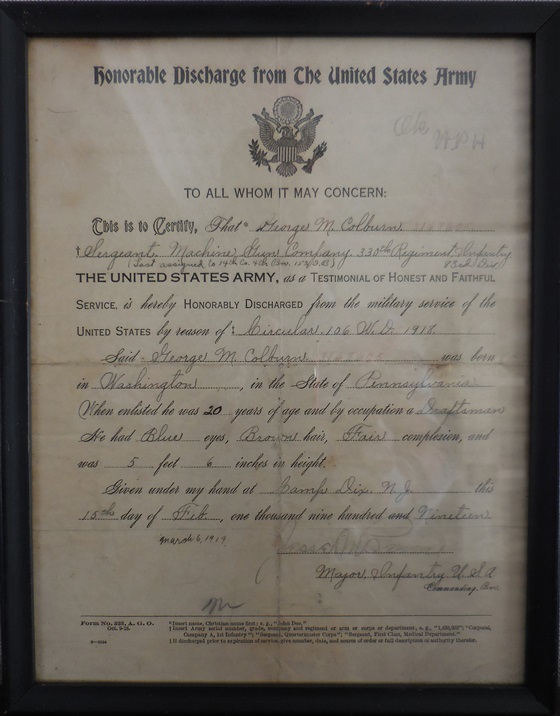 Honorable Discharge from The United States Army
Ok
W P H
TO ALL WHOM IT MAY CONCERN:
This is to Certify, That* George M. Colburn
† Sergeant Machine Gun Company 330th Regiment Infantry
(Last assigned to 14th Co. 4th Bn. 153 D.B.) 83rd Div.
THE UNITED STATES ARMY, as a TESTIMONIAL OF HONEST AND FAITHFUL
SERVICE, is hereby HONORABLY DISCHARGED from the military service of the
UNITED STATES by reason of‡ Circular 106 W.D. 1918
Said George M. Colburn was born
in Washington, in the State of Pennsylvania
When enlisted he was 20 years of age and by occupation a Draftsman
He had Blue eyes, Brown hair, Fair complexion, and
was 5 feet 6 inches in height.
Given under my hand at Camp Dix N.J. this
15th day of Feb., one thousand nine hundred and Nineteen
March 6, 1919
Major Infantry U.S.A
Commanding
Form No. 525, A. G. O.
Oct. 9-18.
*Insert name, Christian name first; e. g., "John Doe."
†Insert Army serial number, grade, company and regiment or arm or corps or department; e. g., "1,620,302"; "Corporal,
Company A, 1st Infantry"; "Sergeant, Quartermaster Corps"; "Sergeant, First Class, Medical Department."
‡If discharged prior to expiration of service, give number, date, and source of order or full description of authority therefor.